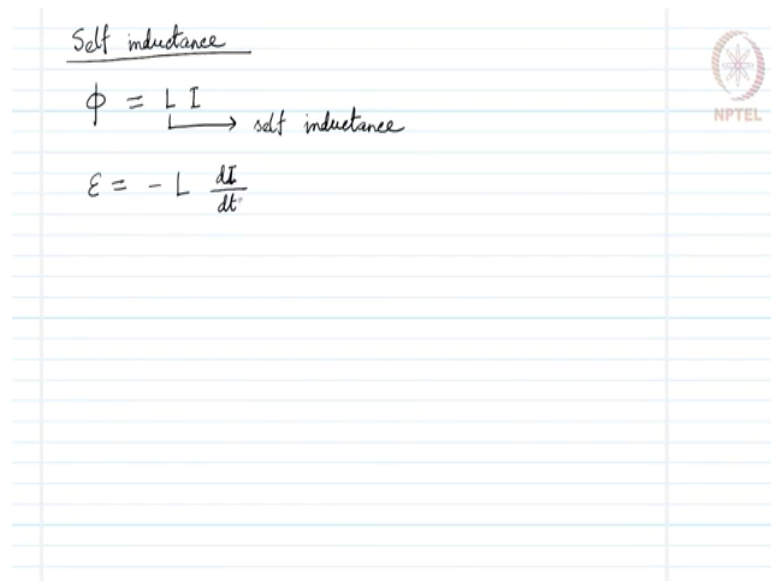 Self inductance
ϕ = L I
self inductance
ε = - L dI/dt
NPTEL